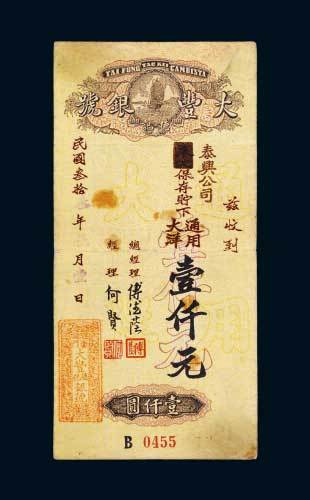 TAI FUNG YAU KEI CAMBISTA
大豐銀號
茲收到
泰興公司
保存貯下
通用
大洋
壹仟元
總經理 傅德蔭
經理 何賢
民國叁拾年月日
壹仟圓
B 0455